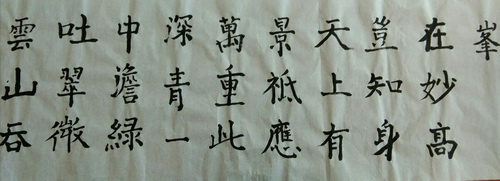 峯
在妙高
豈知身
天上有
景祗應
萬重此
深青一
中澹綠
吐翠微
雲山吞